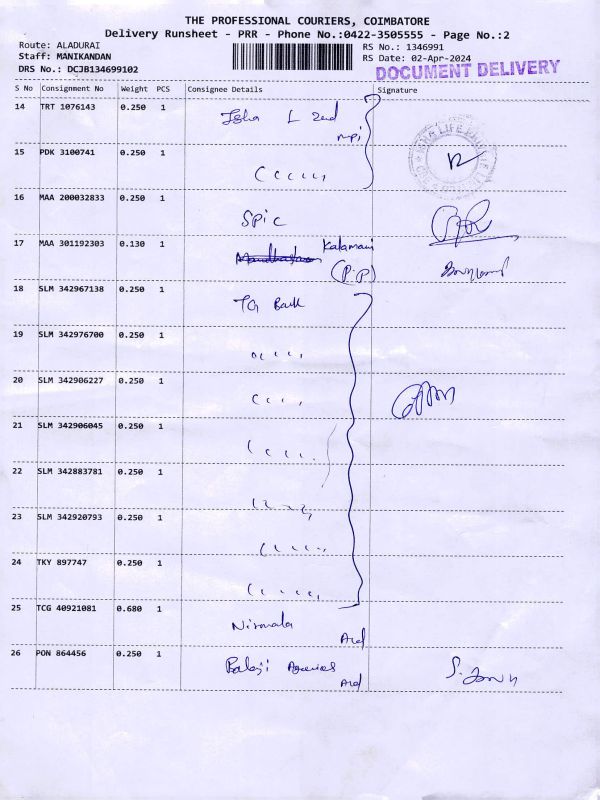 THE PROFESSIONAL COURIERS, COIMBATORE
Delivery Runsheet - PRR - Phone No.:0422-3505555 - Page No.:2
Route: ALADURAI
Staff: MANIKANDAN
DRS No.: DCJB134699102
RS No.: 1346991
RS Date: 02-Apr-2024
DOCUMENT DELIVERY
S No Consignment No Weight PCS Consignee Details Signature
14 TRT 1076143 0.250 1 Isha L 2nd
15 PDK 3100741 0.250 1
16 MAA 200032833 0.250 1 SPIC
17 MAA 301192303 0.130 1 Kalamani
(P.P)
18 SLM 342967138 0.250 1 TG Bank
19 SLM 342976700 0.250 1
20 SLM 342906227 0.250 1
21 SLM 342906045 0.250 1
22 SLM 342883781 0.250 1
23 SLM 342920793 0.250 1
24 TKY 897747 0.250 1
25 TCG 40921081 0.680 1 Nirmala
Ard
26 PON 864456 0.250 1 Balaji Agencies
Ard